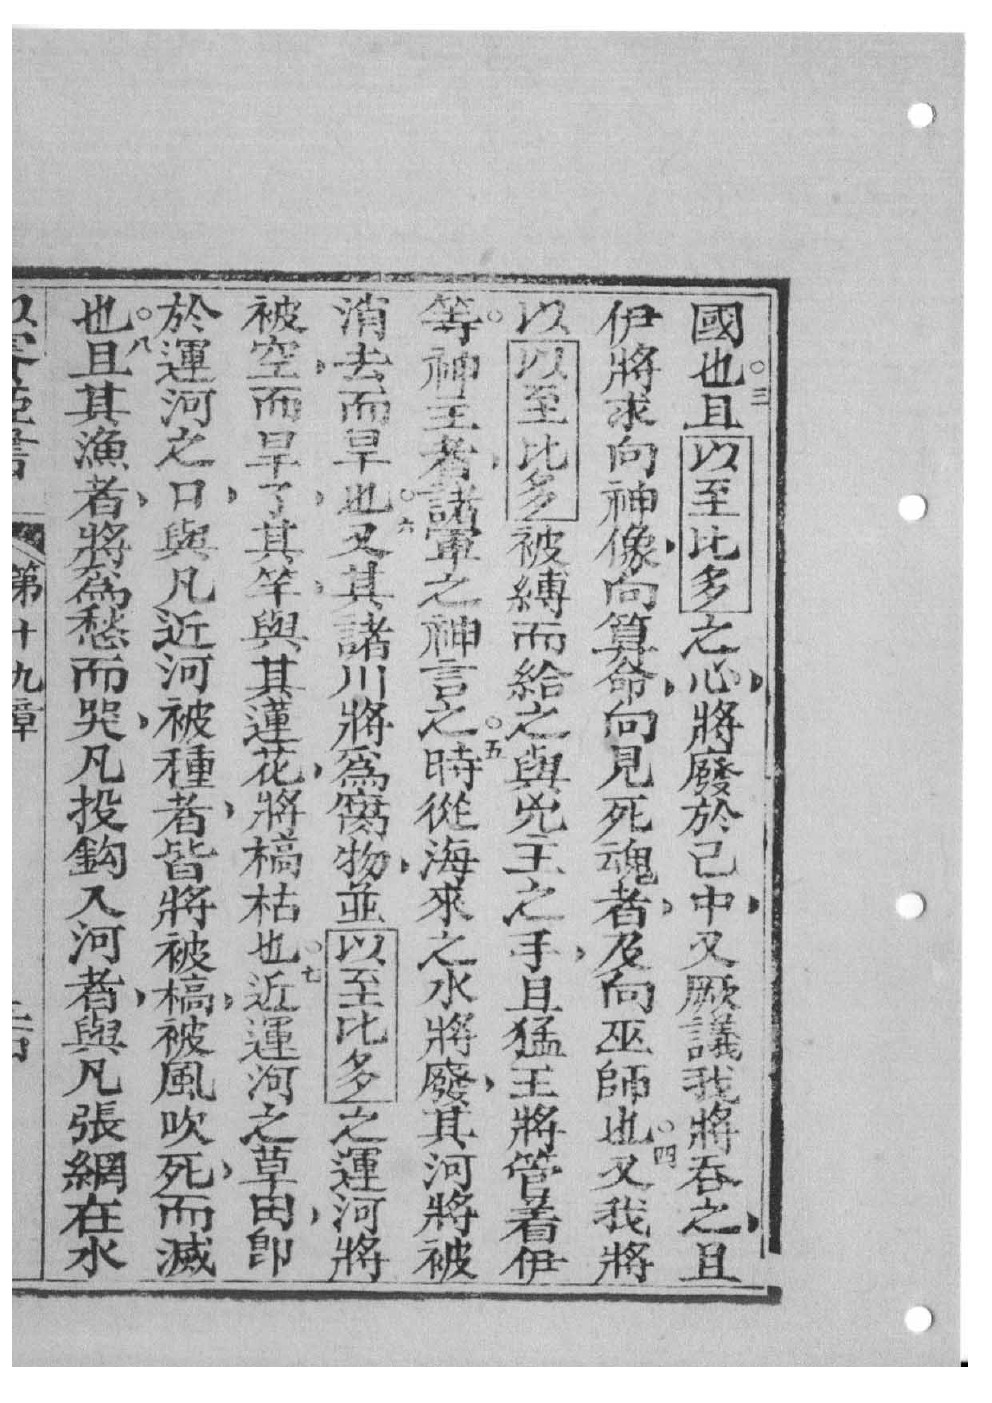 國也○三且以至比多之心將廢於己中又厥議我將吞之且
伊將求向神像向算命向見死魂者及向巫師也○四又我將
以以至比多被縛而給之與兇王之手且猛王將管著伊
等神王者諸軍之神言之○五時從海來之水將廢其河將被
消去而旱也○六又其諸川將爲腐物並以至比多之運河將
被空而旱了其竿與其蓮花將槁枯也○七近運河之草田卽
於運河之口與凡近河被種者皆將被槁被風吹死而滅
也○八且其漁者將爲愁而哭凡投鈎入河者與凡張網在水
第十九章